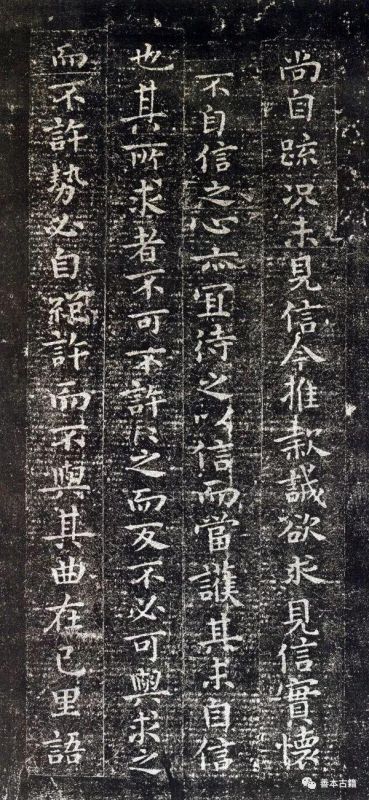 尚自踈况未見信今推款誠欲求見信實懷
不自信之心亦宜待之以信而當護其未自信
也其所求者不可不許々之而反不必可與求之
而不許勢必自絕許而不與其曲在己里語
善本古籍